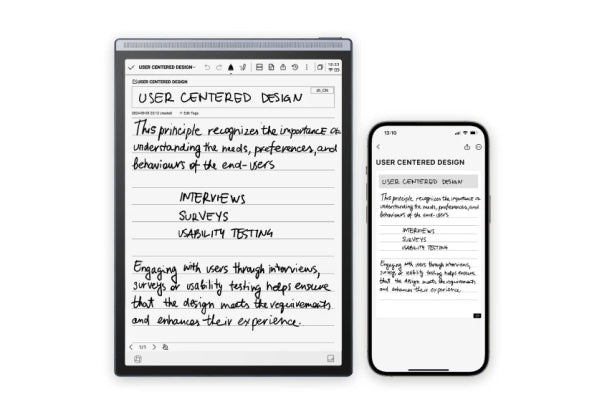 USER CENTERED DESIGN
13:23
USER CENTERED DESIGN
USER CENTERED DESIGN
Edit Tags
This principle recognizes the importance of
understanding the needs, preferences, and
behaviours of the end-users
INTERVIEWS
SURVEYS
USABILITY TESTING
Engaging with users through interviews,
surveys or usability testing helps ensure
that the design meets the requirements
and enhances their experience.
1/1
13:10
USER CENTERED DESIGN
USER CENTERED DESIGN
This principle recognizes the importance of
understanding the needs, preferences, and
behaviours of the end-users
INTERVIEWS
SURVEYS
USABILITY TESTING
Engaging with users through interviews,
surveys or usability testing helps ensure
that the design meets the requirements
and enhances their experience.